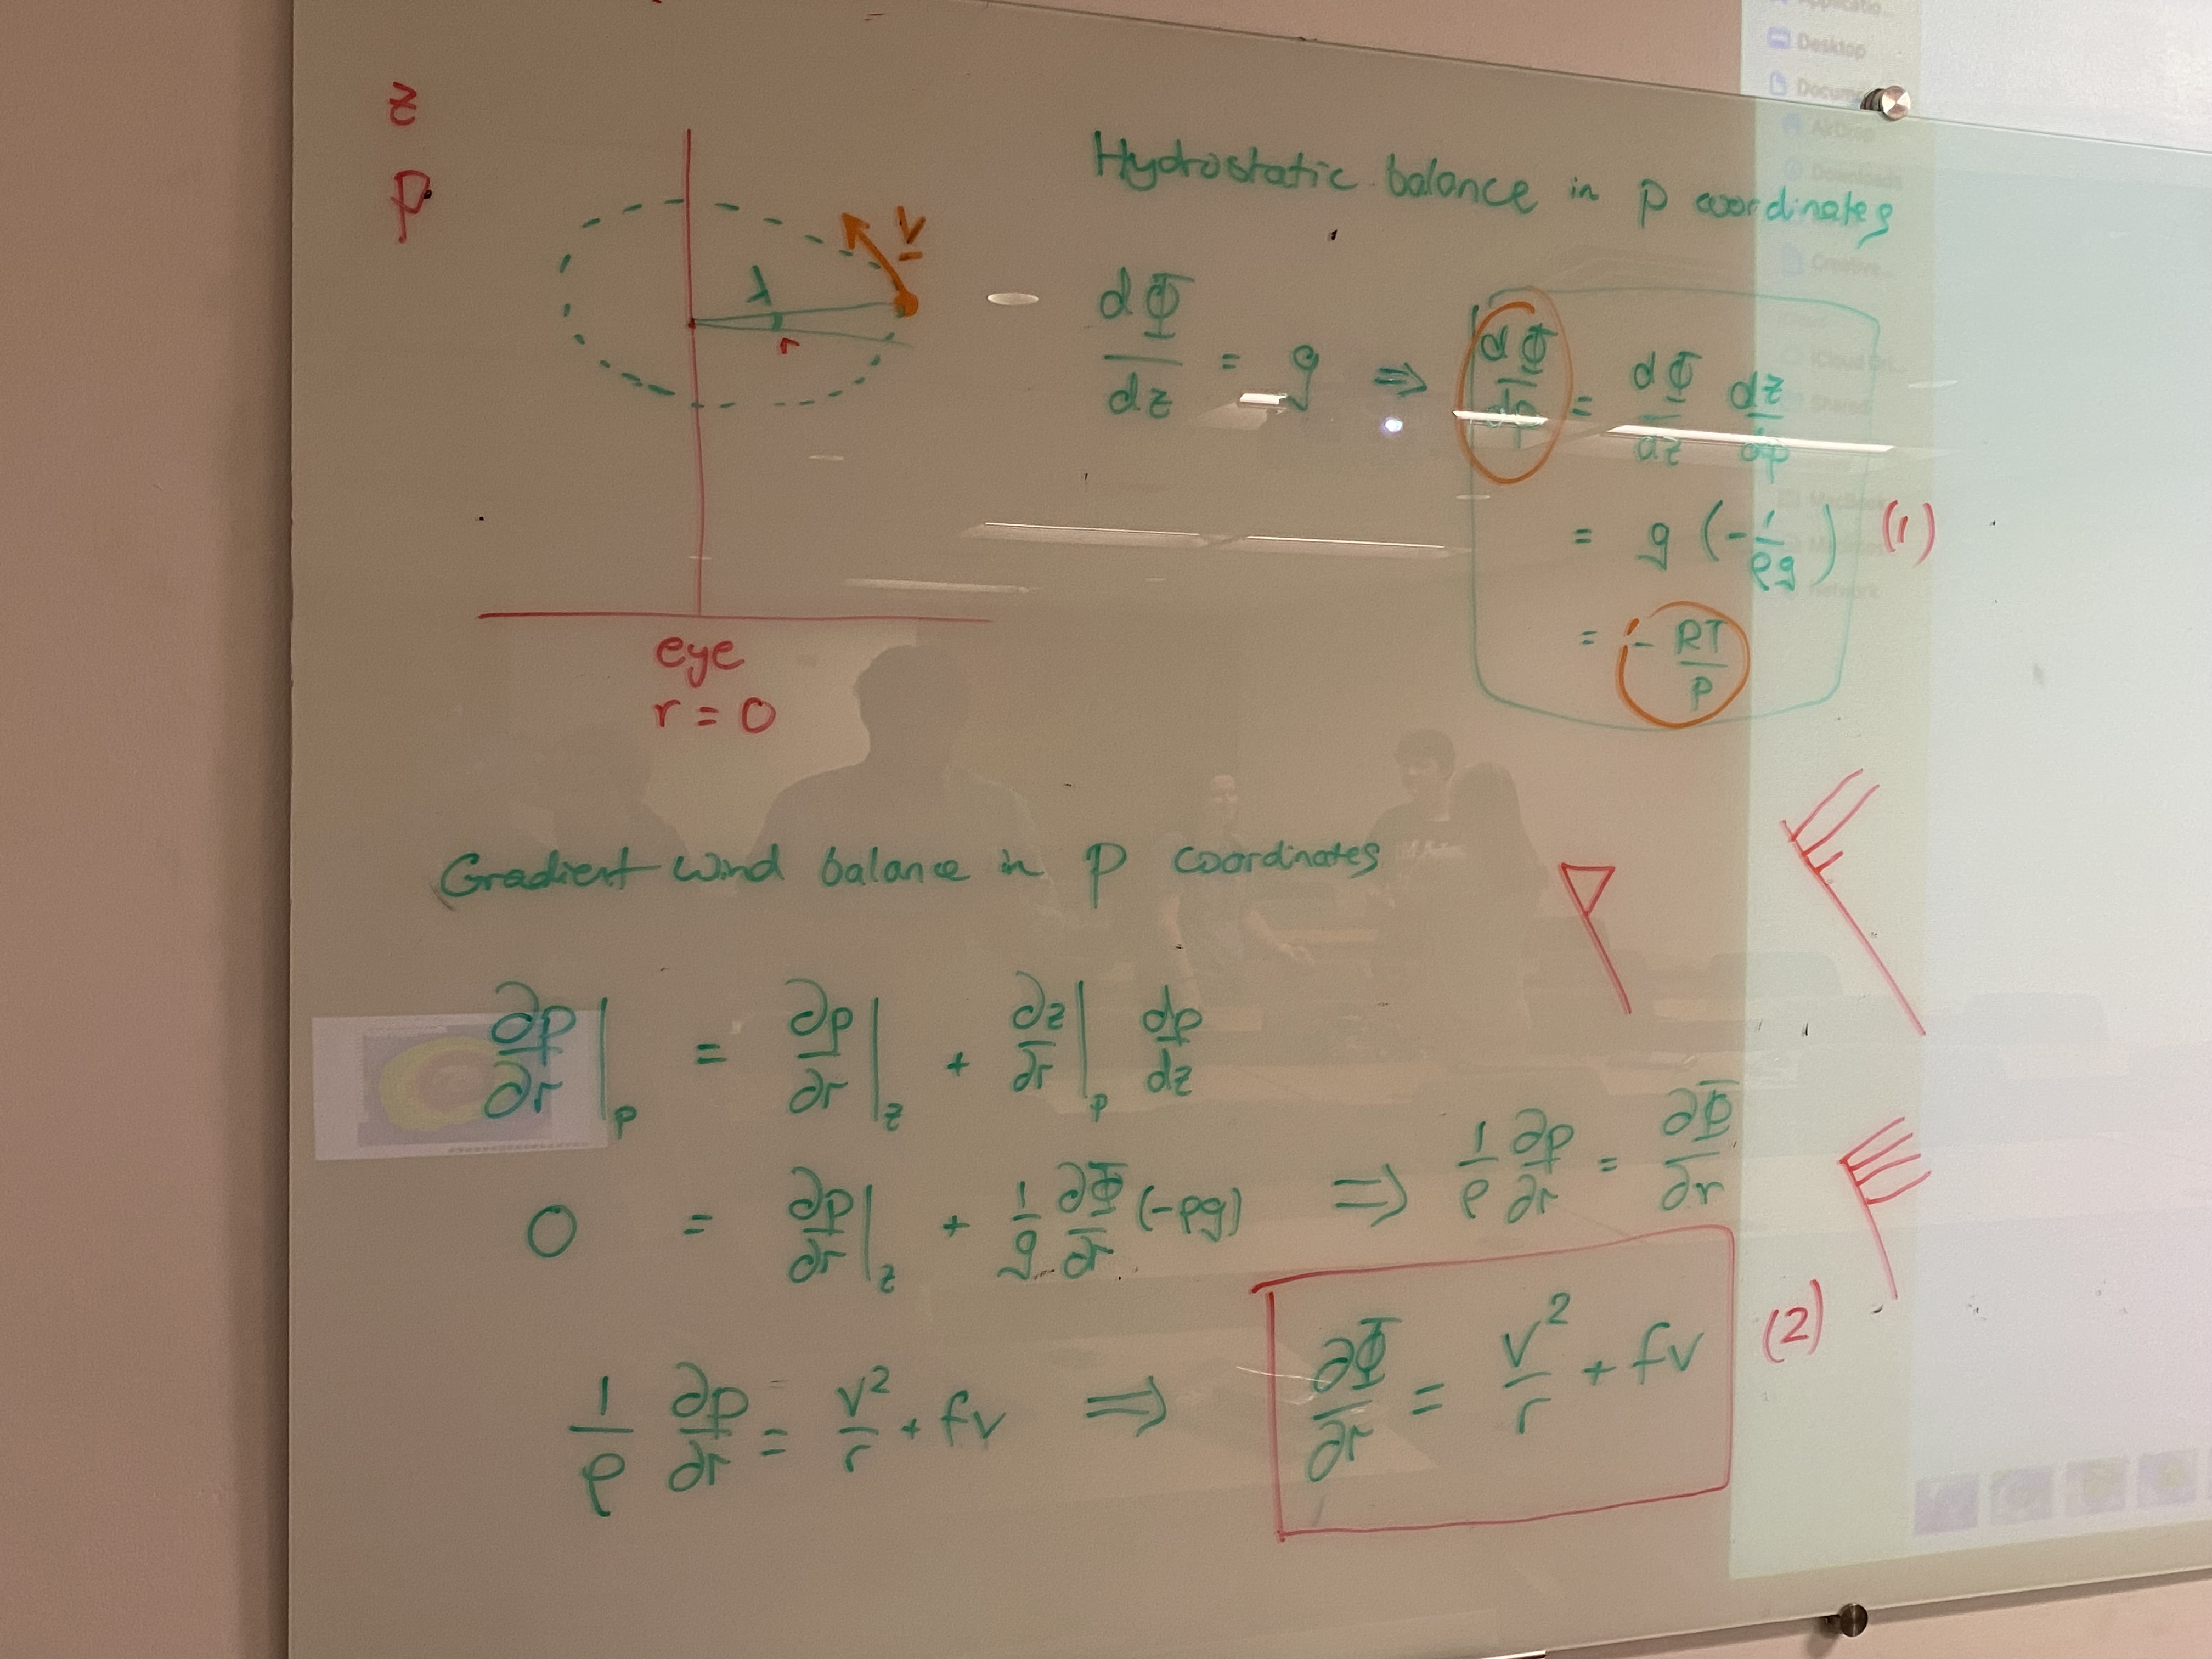 z
p
V
λ
r
eye
r = 0
Hydrostatic balance in p coordinates
dΦ/dz = g ⇒ dΦ/dp = dΦ/dz dz/dp
= g (-1/ρg) (1)
= - RT/p
Gradient wind balance in p coordinates
∂p/∂r|p = ∂p/∂r|z + ∂z/∂r|p dp/dz
0 = ∂p/∂r|z + 1/g ∂Φ/∂r (-ρg) ⇒ 1/ρ ∂p/∂r = ∂Φ/∂r
1/ρ ∂p/∂r = v²/r + fv ⇒ ∂Φ/∂r = v²/r + fv (2)
Applicatio...
Desktop
Docume
AirDrop
Downloads
Creative...
iCloud Dri...
Shared
MacBook
Network